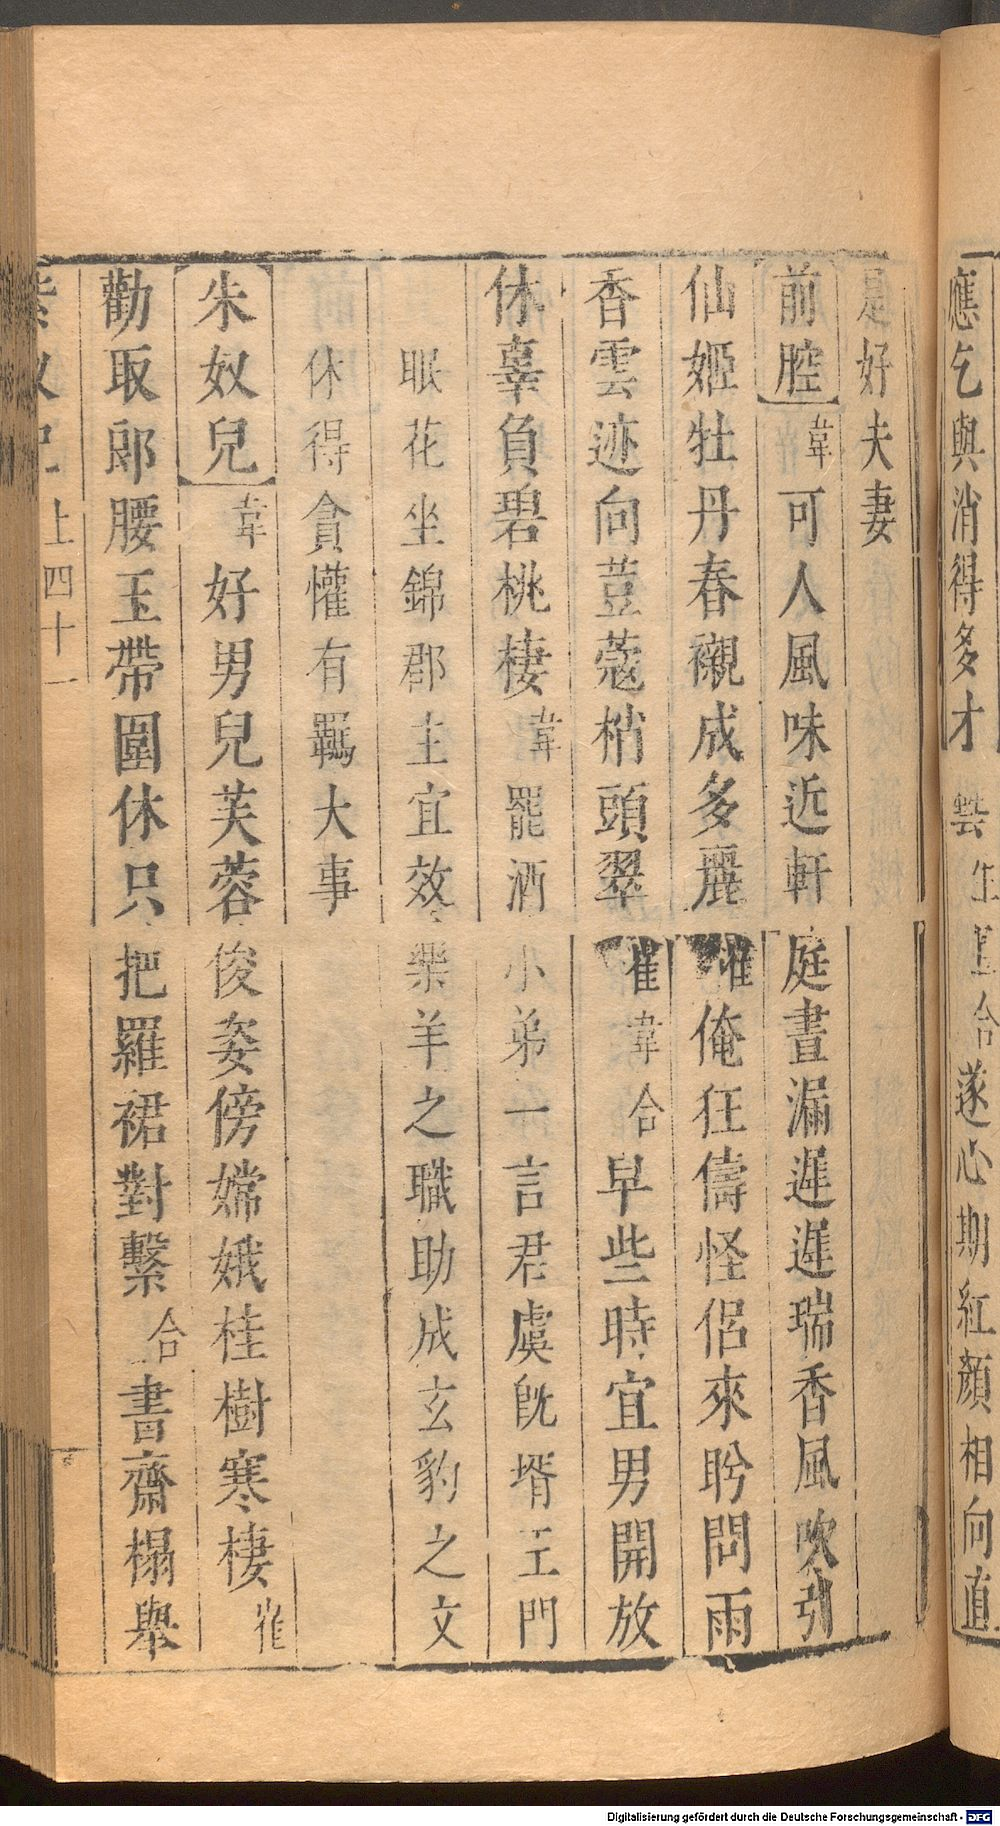 應乞與消得多才
遂心期紅顏相向直
是好夫妻
前腔 韋 可人風味近軒庭晝漏遲遲瑞香風吹引
仙姬牡丹春襯成多麗 崔 俺狂儔怪侶來盻問雨
香雲迹向荳蔻梢頭翠 崔 韋 合 早些時宜男開放
休辜負碧桃棲 韋 罷酒小弟一言君虞旣壻王門
眠花坐錦郡主宜效樂羊之職助成玄豹之文
休得貪懽有羈大事
朱奴兒 韋 好男兒芙蓉俊姿傍嫦娥桂樹寒棲 崔
勸取郎腰玉帶圍休只把羅裙對繫 合 書齋榻舉
上 四十一
Digitalisierung gefördert durch die Deutsche Forschungsgemeinschaft - DFG